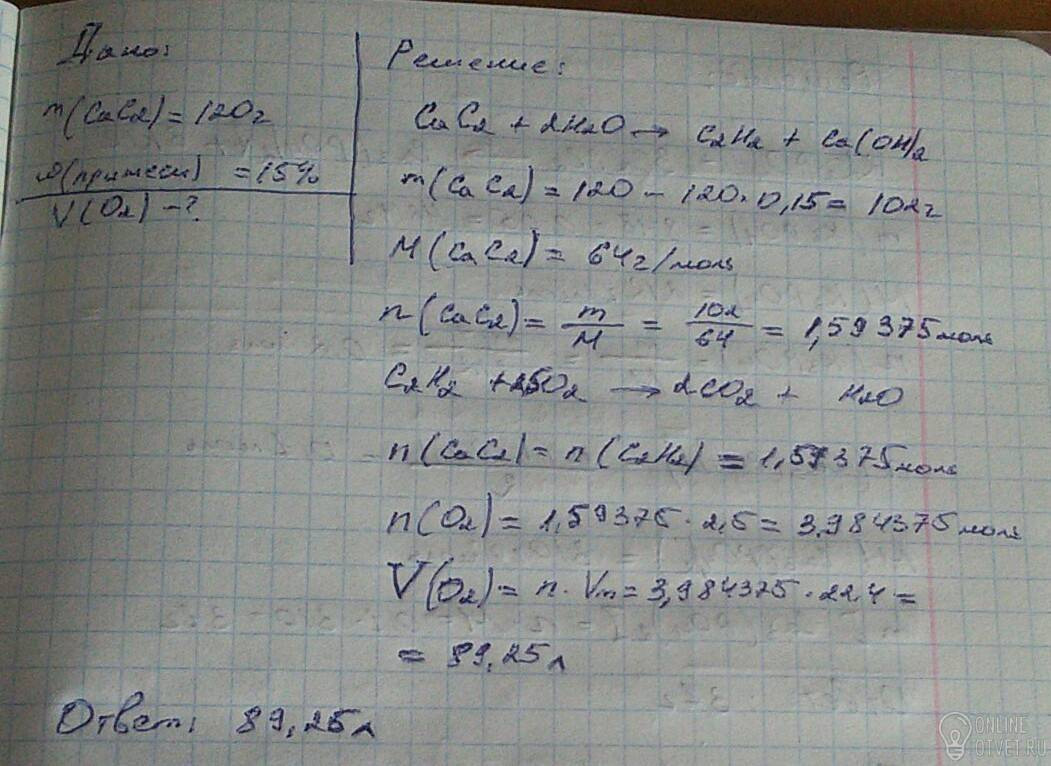 Дано:
m(CaC2) = 120г
ω(примеси) = 15%
V(O2) - ?
Решение:
CaC2 + 2H2O → C2H2 + Ca(OH)2
m(CaC2) = 120 - 120·0,15 = 102г
M(CaC2) = 64г/моль
n(CaC2) = m/M = 102/64 = 1,59375моль
C2H2 + 2,5O2 → 2CO2 + H2O
n(CaC2) = n(C2H2) = 1,59375моль
n(O2) = 1,59375·2,5 = 3,984375моль
V(O2) = n·Vm = 3,984375·22.4 =
= 89,25л
Ответ: 89,25л
ONLINE
OTVET.RU